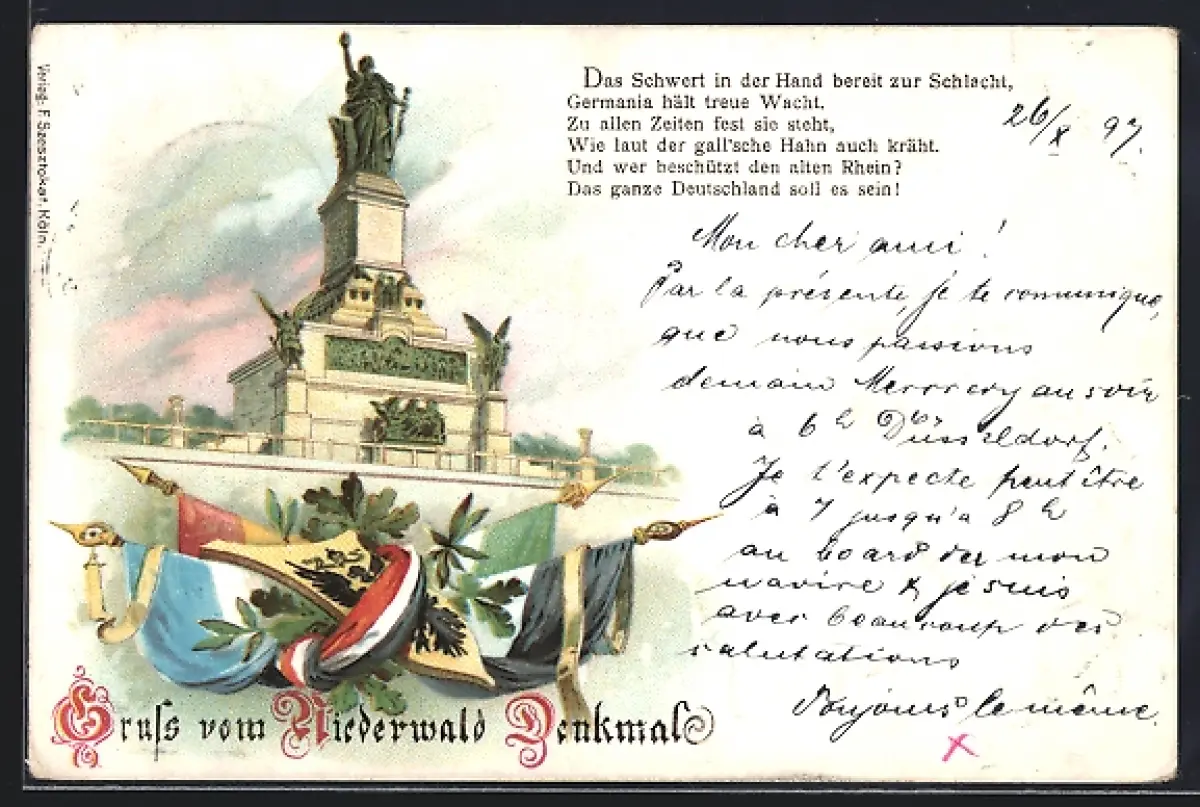 Verlag: F. Szesztokat, Köln.
Das Schwert in der Hand bereit zur Schlacht,
Germania hält treue Wacht,
Zu allen Zeiten fest sie steht,
Wie laut der gall'sche Hahn auch kräht.
Und wer beschützt den alten Rhein?
Das ganze Deutschland soll es sein!
26/X 97.
Mon cher ami!
Par la présente, je te communique,
que nous passions
demain au soir
à 6h Düsseldorf.
Je t'expecte peut être
à 7 jusqu'a 8 h
au board der mon
navire & je suis
avec beaucoup des
salutations
Toujours le même.
x
Gruss vom Niederwald Denkmal